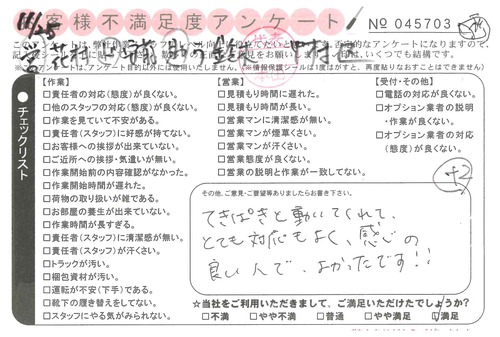 お客様不満足度アンケート
№ 045703
11/25
【作業】
□責任者の対応(態度)が良くない。
□他のスタッフの対応(態度)が良くない。
□作業を見ていて不安がある。
□責任者(スタッフ)に好感が持てない。
□お客様への挨拶が出来ていない。
□ご近所への挨拶・気遣いが無い。
□作業開始前の内容確認がなかった。
□作業開始時間が遅れた。
□荷物の取り扱いが雑である。
□お部屋の養生が出来ていない。
□作業時間が長すぎる。
□責任者(スタッフ)に清潔感が無い。
□責任者(スタッフ)が汗くさい。
□トラックが汚い。
□梱包資材が汚い。
□運転が不安(下手)である。
□靴下の履き替えをしてない。
□スタッフにやる気がみられない。
●チェックリスト
【営業】
□見積もり時間に遅れた。
□見積もり時間が長い。
□営業マンに清潔感が無い。
□営業マンが煙草くさい。
□営業マンが汗くさい。
□営業態度が良くない。
□営業の説明と作業が一致してない。
【受付・その他】
□電話の対応が良くない。
□オプション業者の説明
・作業が良くない。
□オプション業者の対応
(態度)が良くない。
+2
その他、ご意見・ご要望等ありましたらお書き下さい。
てきぱきと動いてくれて、
とても対応もよく、感じの
良い人で、よかったです!!
☆当社をご利用いただきまして、ご満足いただけたでしょうか?
□不満 □やや不満 □普通 □やや満足 □満足